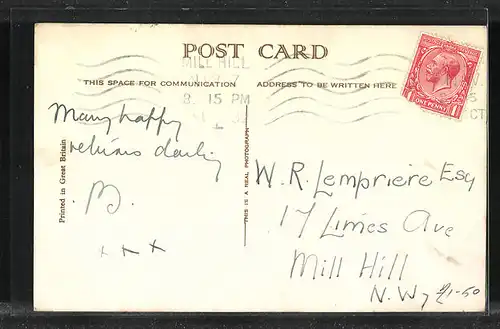 POST CARD
MILL HILL
8. 15 PM
THIS SPACE FOR COMMUNICATION
ADDRESS TO BE WRITTEN HERE
ONE PENNY
Many happy
returns darling
B.
x x x
Printed in Great Britain
THIS IS A REAL PHOTOGRAPH
W. R. Lempriere Esq
17 Limes Ave
Mill Hill
N.W 7
£1-50